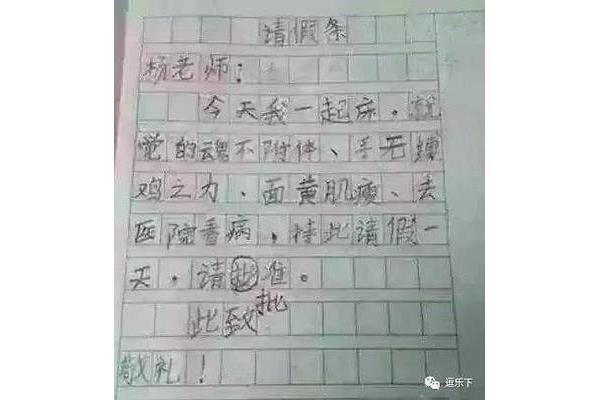 请假条
杨老师：
今天我一起床，就
觉的魂不附体、手无缚
鸡之力、面黄肌瘦、去
医院看病，特此请假一
天，请准。
批
此致
敬礼！
逗乐下